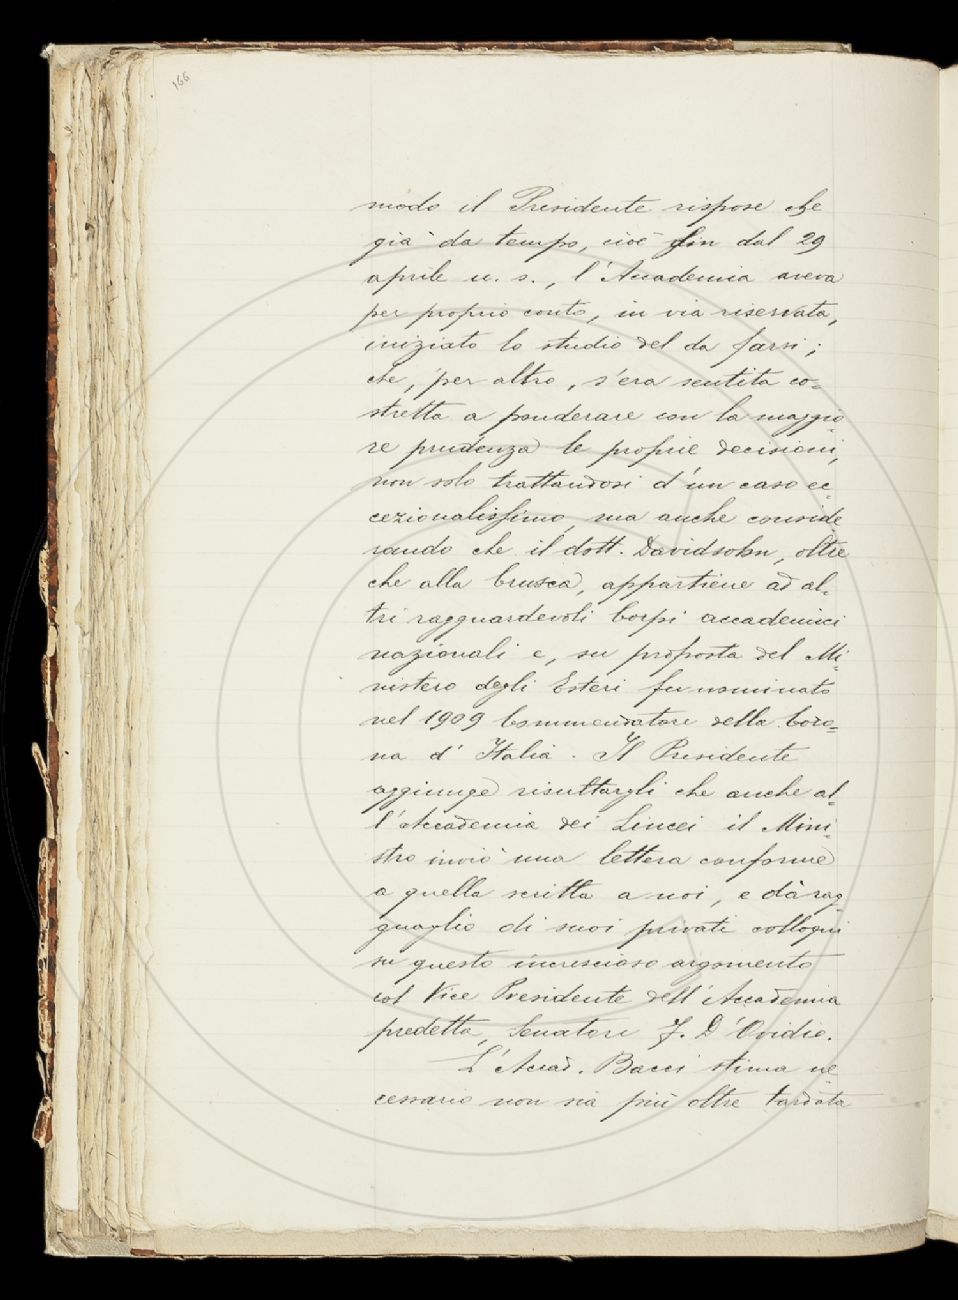 166
modo il Presidente rispose che
già da tempo, cioè fin dal 29
aprile u. s., l'Accademia aveva
per proprio conto, in via riservata,
iniziato lo studio del da farsi;
che, per altro, s'era sentita co=
stretta a ponderare con la maggio=
re prudenza le proprie decisioni,
non solo trattandosi d'un caso ec=
cezionalissimo, ma anche conside
rando che il dott. Davidsohn, oltre
che alla Crusca, appartiene ad al=
tri ragguardevoli Corpi accademici
nazionali e, su proposta del Mi=
nistero degli Esteri fu nominato
nel 1909 Commendatore della Coro=
na d'Italia. Il Presidente
aggiunge risultargli che anche al=
l'Accademia dei Lincei il Mini=
stro inviò una lettera conforme
a quella scritta a noi, e dà rag=
guaglio di suoi privati colloqui
su questo increscioso argomento
col Vice Presidente dell'Accademia
predetta, Senatore F. D'Ovidio.
L'Accad. Bacci stima ne
cessario non sia più oltre tardata